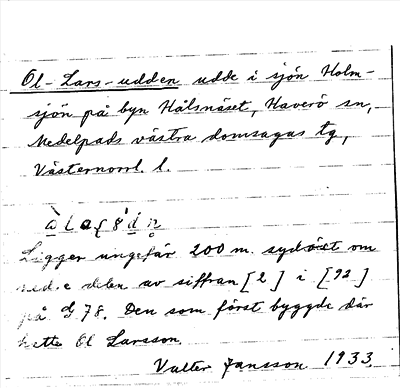 Öl-Lars-udden udde i sjön Holm-
sjön på byn Hålsnäset, Haverö sn,
Medelpads västra domsagas tg,
Västernorrl. l.
Ligger ungefär 200 m. sydöst om
ned. e delen av siffran [2] i [92]
på G 78. Den som först byggde där
hette Öl Larsson.
Valter Jansson 1933.